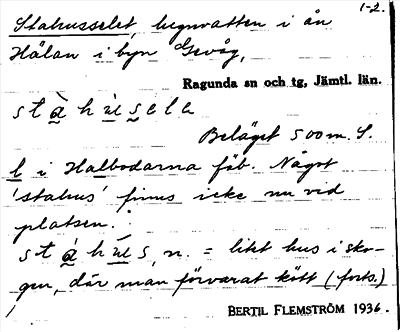 1-2.
Stahusselet, lugnvatten i ån
Hålan i byn Gevåg,
Ragunda sn och tg, Jämtl. län.
stàhùsele
Beläget 500 m. S.
l i Halbodarna fäb. Något
'stahus' finns icke nu vid
platsen.
stáhùs, n. = litet hus i sko-
gen, där man förvarat kött (forts.)
BERTIL FLEMSTRÖM 1936.